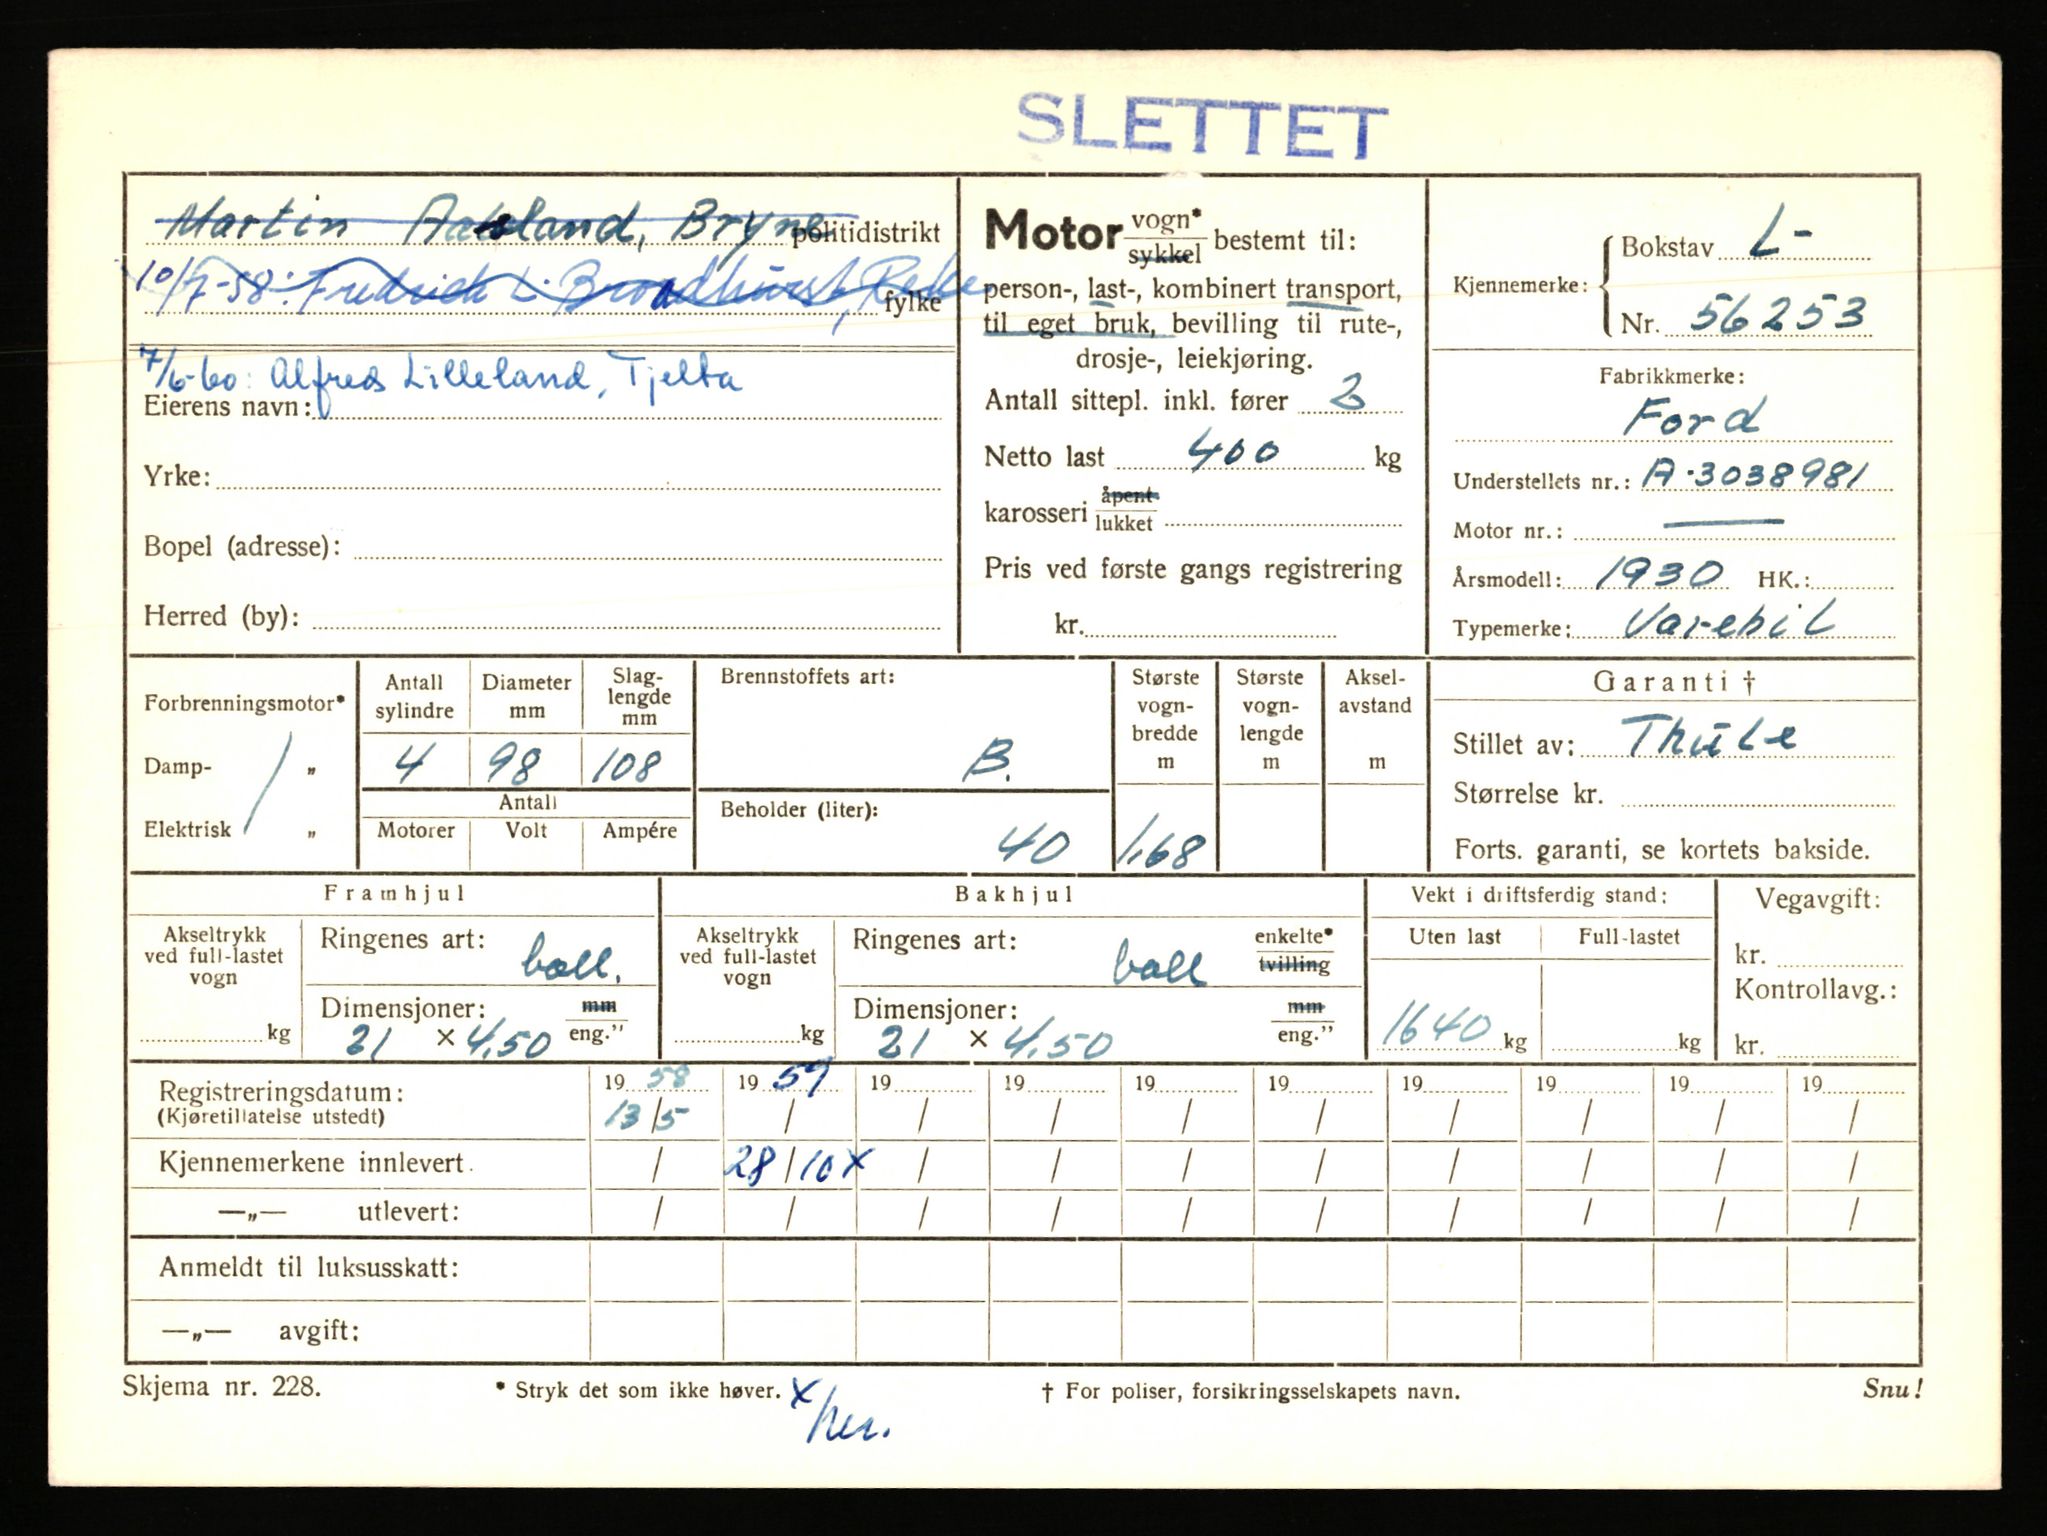 SLETTET
Martin Aabsland, Bryne politidistrikt
10/7-58: Fredrick L. Broadhurst, Rege fylke
7/6-60: Alfred Lilleland, Tjelta
Eierens navn:
Yrke:
Bopel (adresse):
Herred (by):
Motor vogn* sykkel bestemt til:
person-, last-, kombinert transport,
til eget bruk, bevilling til rute-,
drosje-, leiekjøring.
Antall sittepl. inkl. fører 2
Netto last 400 kg
karosseri åpent lukket
Pris ved første gangs registrering
kr.
Kjennemerke: Bokstav L-
Nr. 56253
Fabrikkmerke:
Ford
Understellets nr.: A-3038981
Motor nr.: —
Årsmodell: 1930 HK.:
Typemerke: Varebil
Forbrenningsmotor*
Damp- „
Elektrisk „
Antall sylindre
Diameter mm
Slag-lengde mm
4 98 108
Antall
Motorer Volt Ampére
Brennstoffets art:
B.
Beholder (liter):
40
Største vogn-bredde m
1,68
Største vogn-lengde m
Aksel-avstand m
Garanti †
Stillet av: Thule
Størrelse kr.
Forts. garanti, se kortets bakside.
Framhjul
Akseltrykk ved full-lastet vogn
kg
Ringenes art: ball.
Dimensjoner: mm
21 × 4,50 eng.”
Bakhjul
Akseltrykk ved full-lastet vogn
kg
Ringenes art: ball enkelte* tvilling
Dimensjoner: mm
21 × 4,50 eng.”
Vekt i driftsferdig stand:
Uten last Full-lastet
1640 kg kg
Vegavgift:
kr.
Kontrollavg.:
kr.
Registreringsdatum: 19 58 19 59 19 19 19 19 19 19 19 19
(Kjøretillatelse utstedt) 13/5 / / / / / / / / /
Kjennemerkene innlevert. / 28/10 x / / / / / / / /
—„— utlevert: / / / / / / / / / /
Anmeldt til luksusskatt:
—„— avgift:
Skjema nr. 228. * Stryk det som ikke høver. † For poliser, forsikringsselskapets navn. Snu!
x/her.